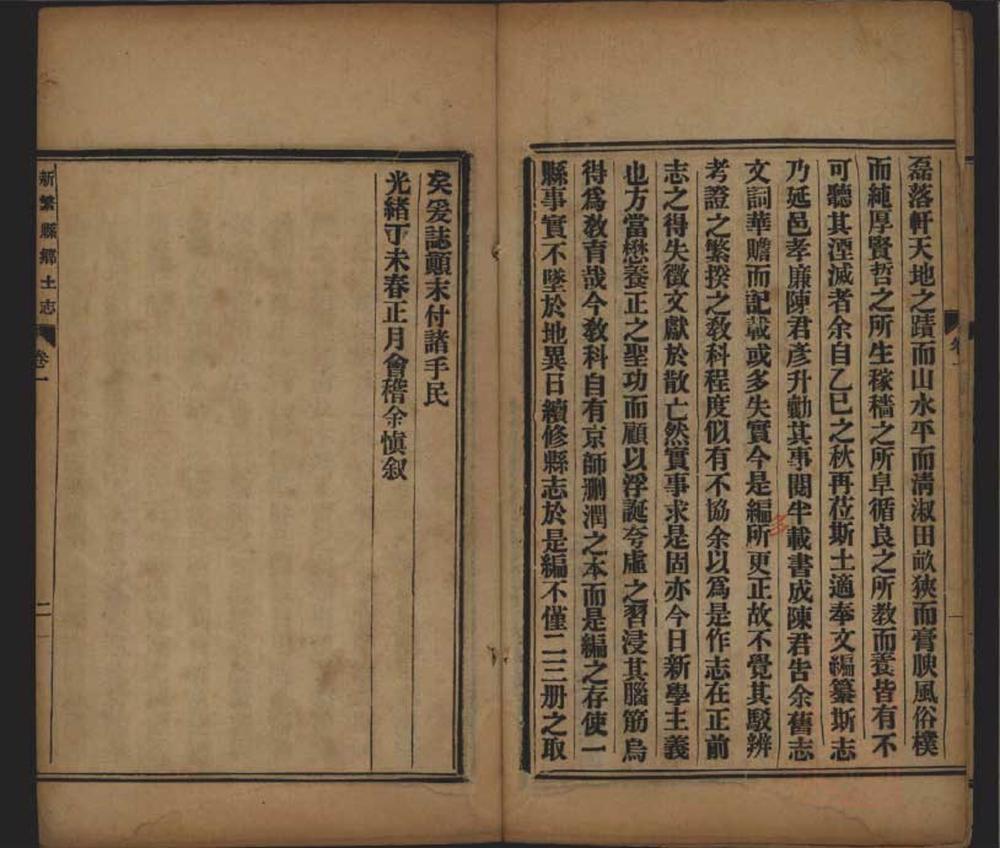 磊落軒天地之蹟而山水平而清淑田畝狹而膏腴風俗樸
而純厚賢哲之所生稼穡之所阜循良之所教而養皆有不
可聽其湮滅者余自乙巳之秋再莅斯土適奉文編纂斯志
乃延邑孝廉陳君彥升勷其事閱半載書成陳君告余舊志
文詞華贍而記載或多失實今是編所更正故不覺其駁辨
多
考證之繁揆之教科程度似有不協余以爲是作志在正前
志之得失徵文獻於散亡然實事求是固亦今日新學主義
也方當懋養正之聖功而顧以浮誕夸虛之習浸其腦筋烏
得爲教育哉今教科自有京師删潤之本而是編之存使一
縣事實不墜於地異日續修縣志於是編不僅二三册之取
卷一
矣爰誌顛末付諸手民
光緒丁未春正月會稽余慎叙
新繁縣鄉土志
卷一
二